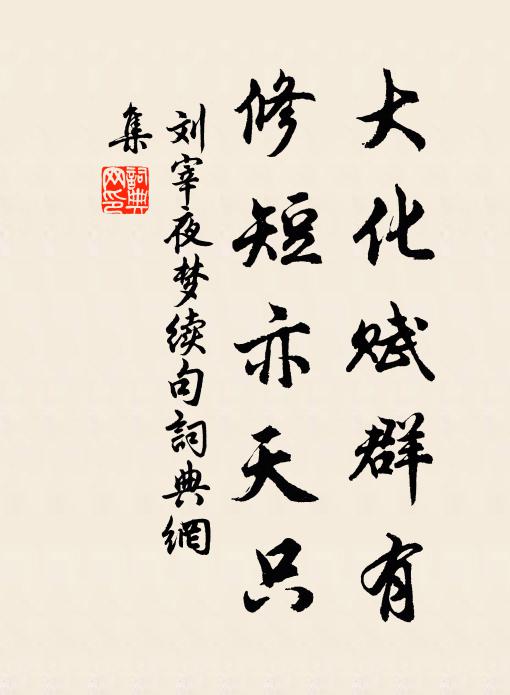 大化赋群有
修短亦天只
刘宰夜梦续句詞典網
集
詞典
网印